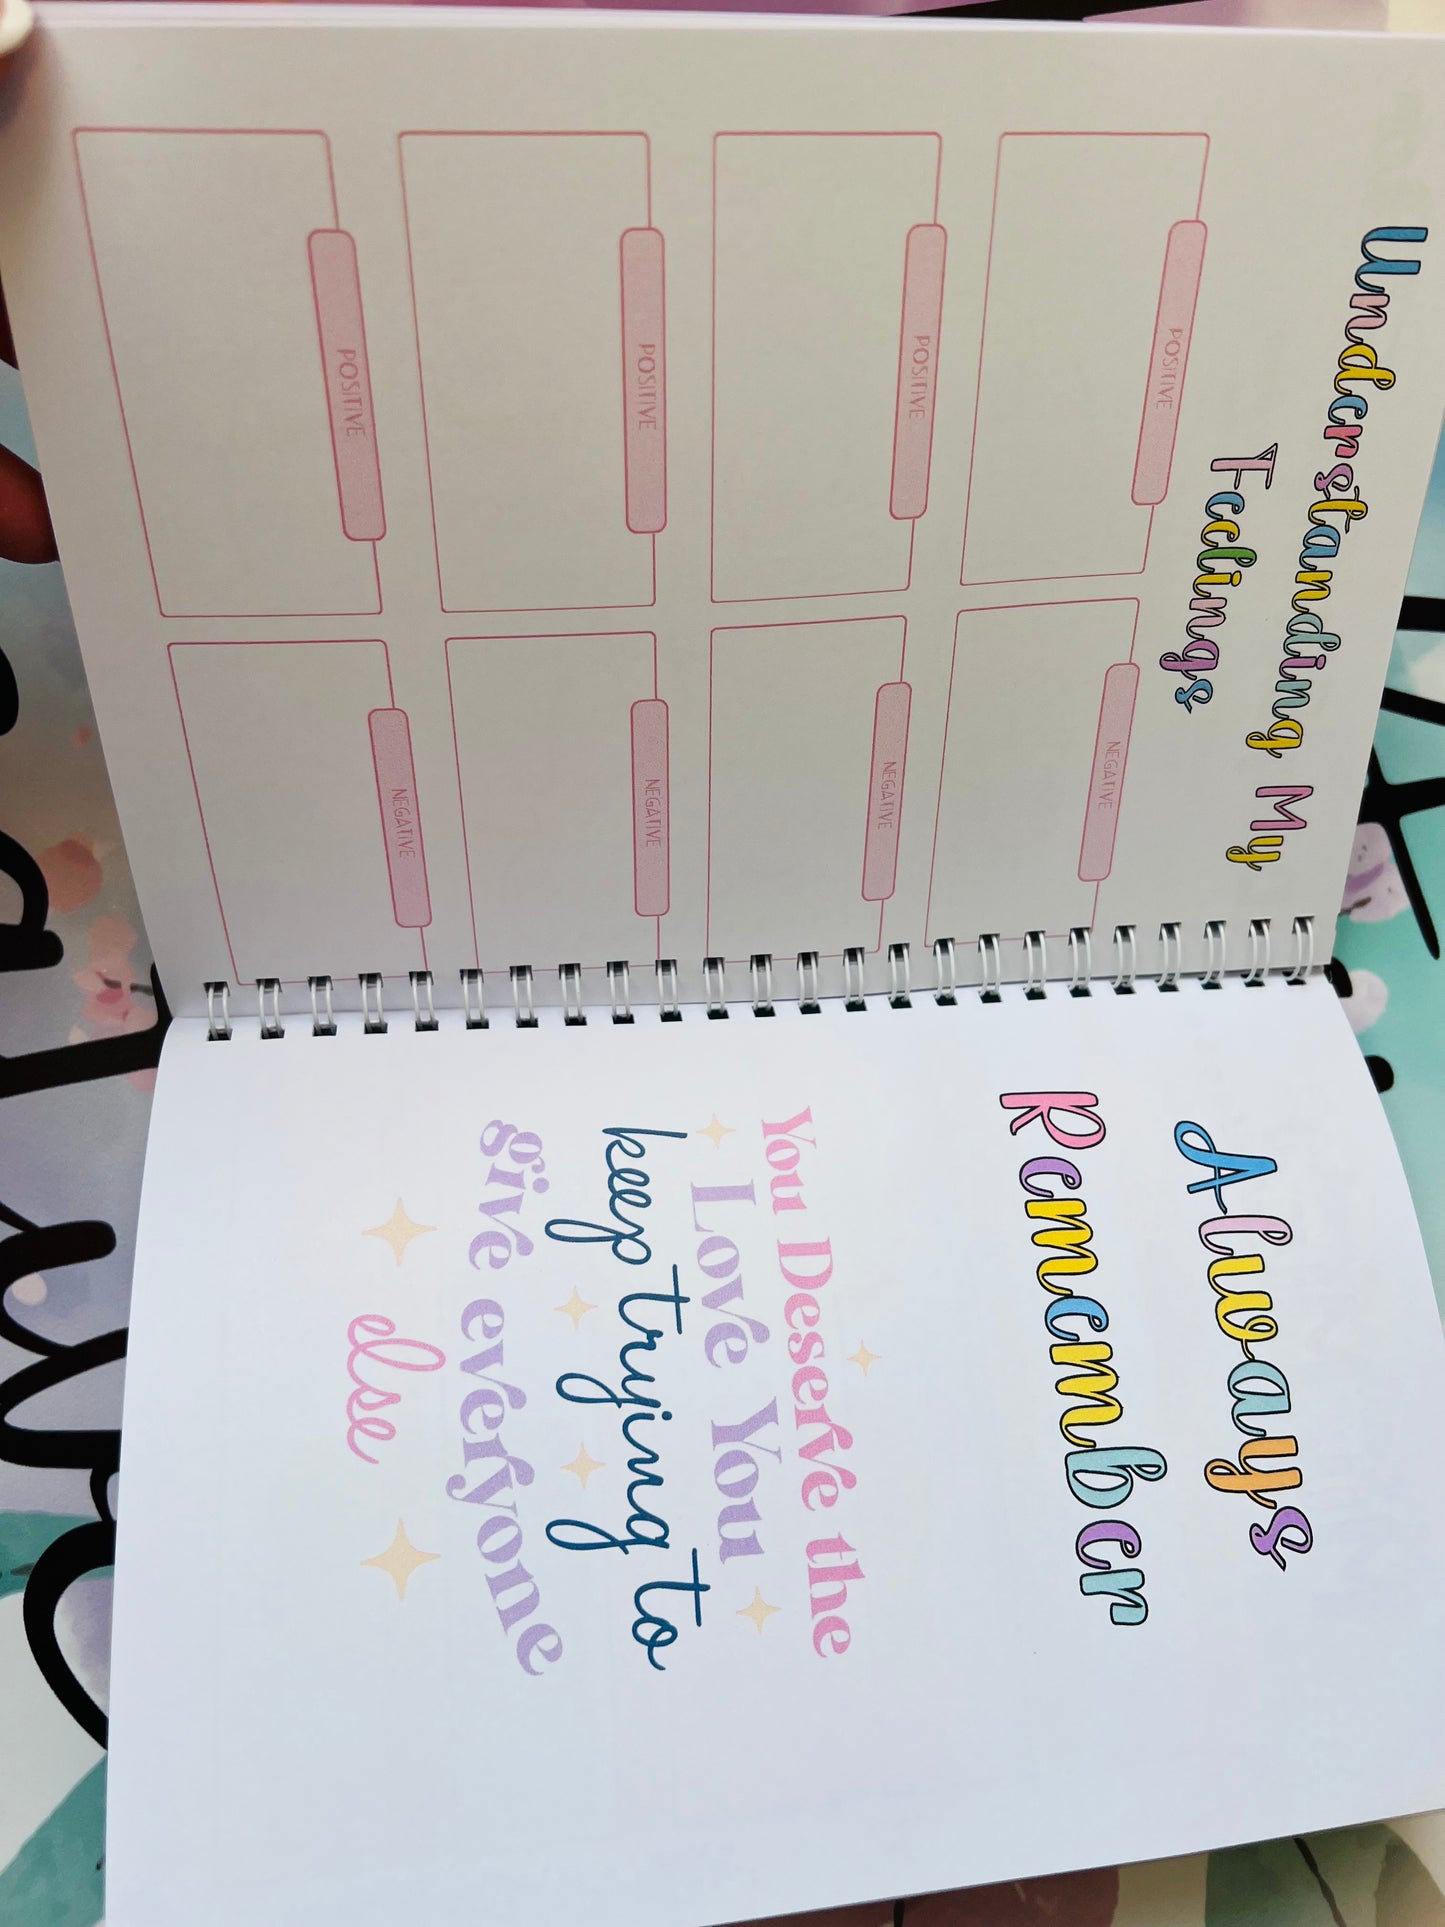 Understanding My
Feelings
POSITIVE
NEGATIVE
POSITIVE
NEGATIVE
POSITIVE
NEGATIVE
POSITIVE
NEGATIVE
Always
Remember
You Deserve the
Love You
keep trying to
give everyone
else